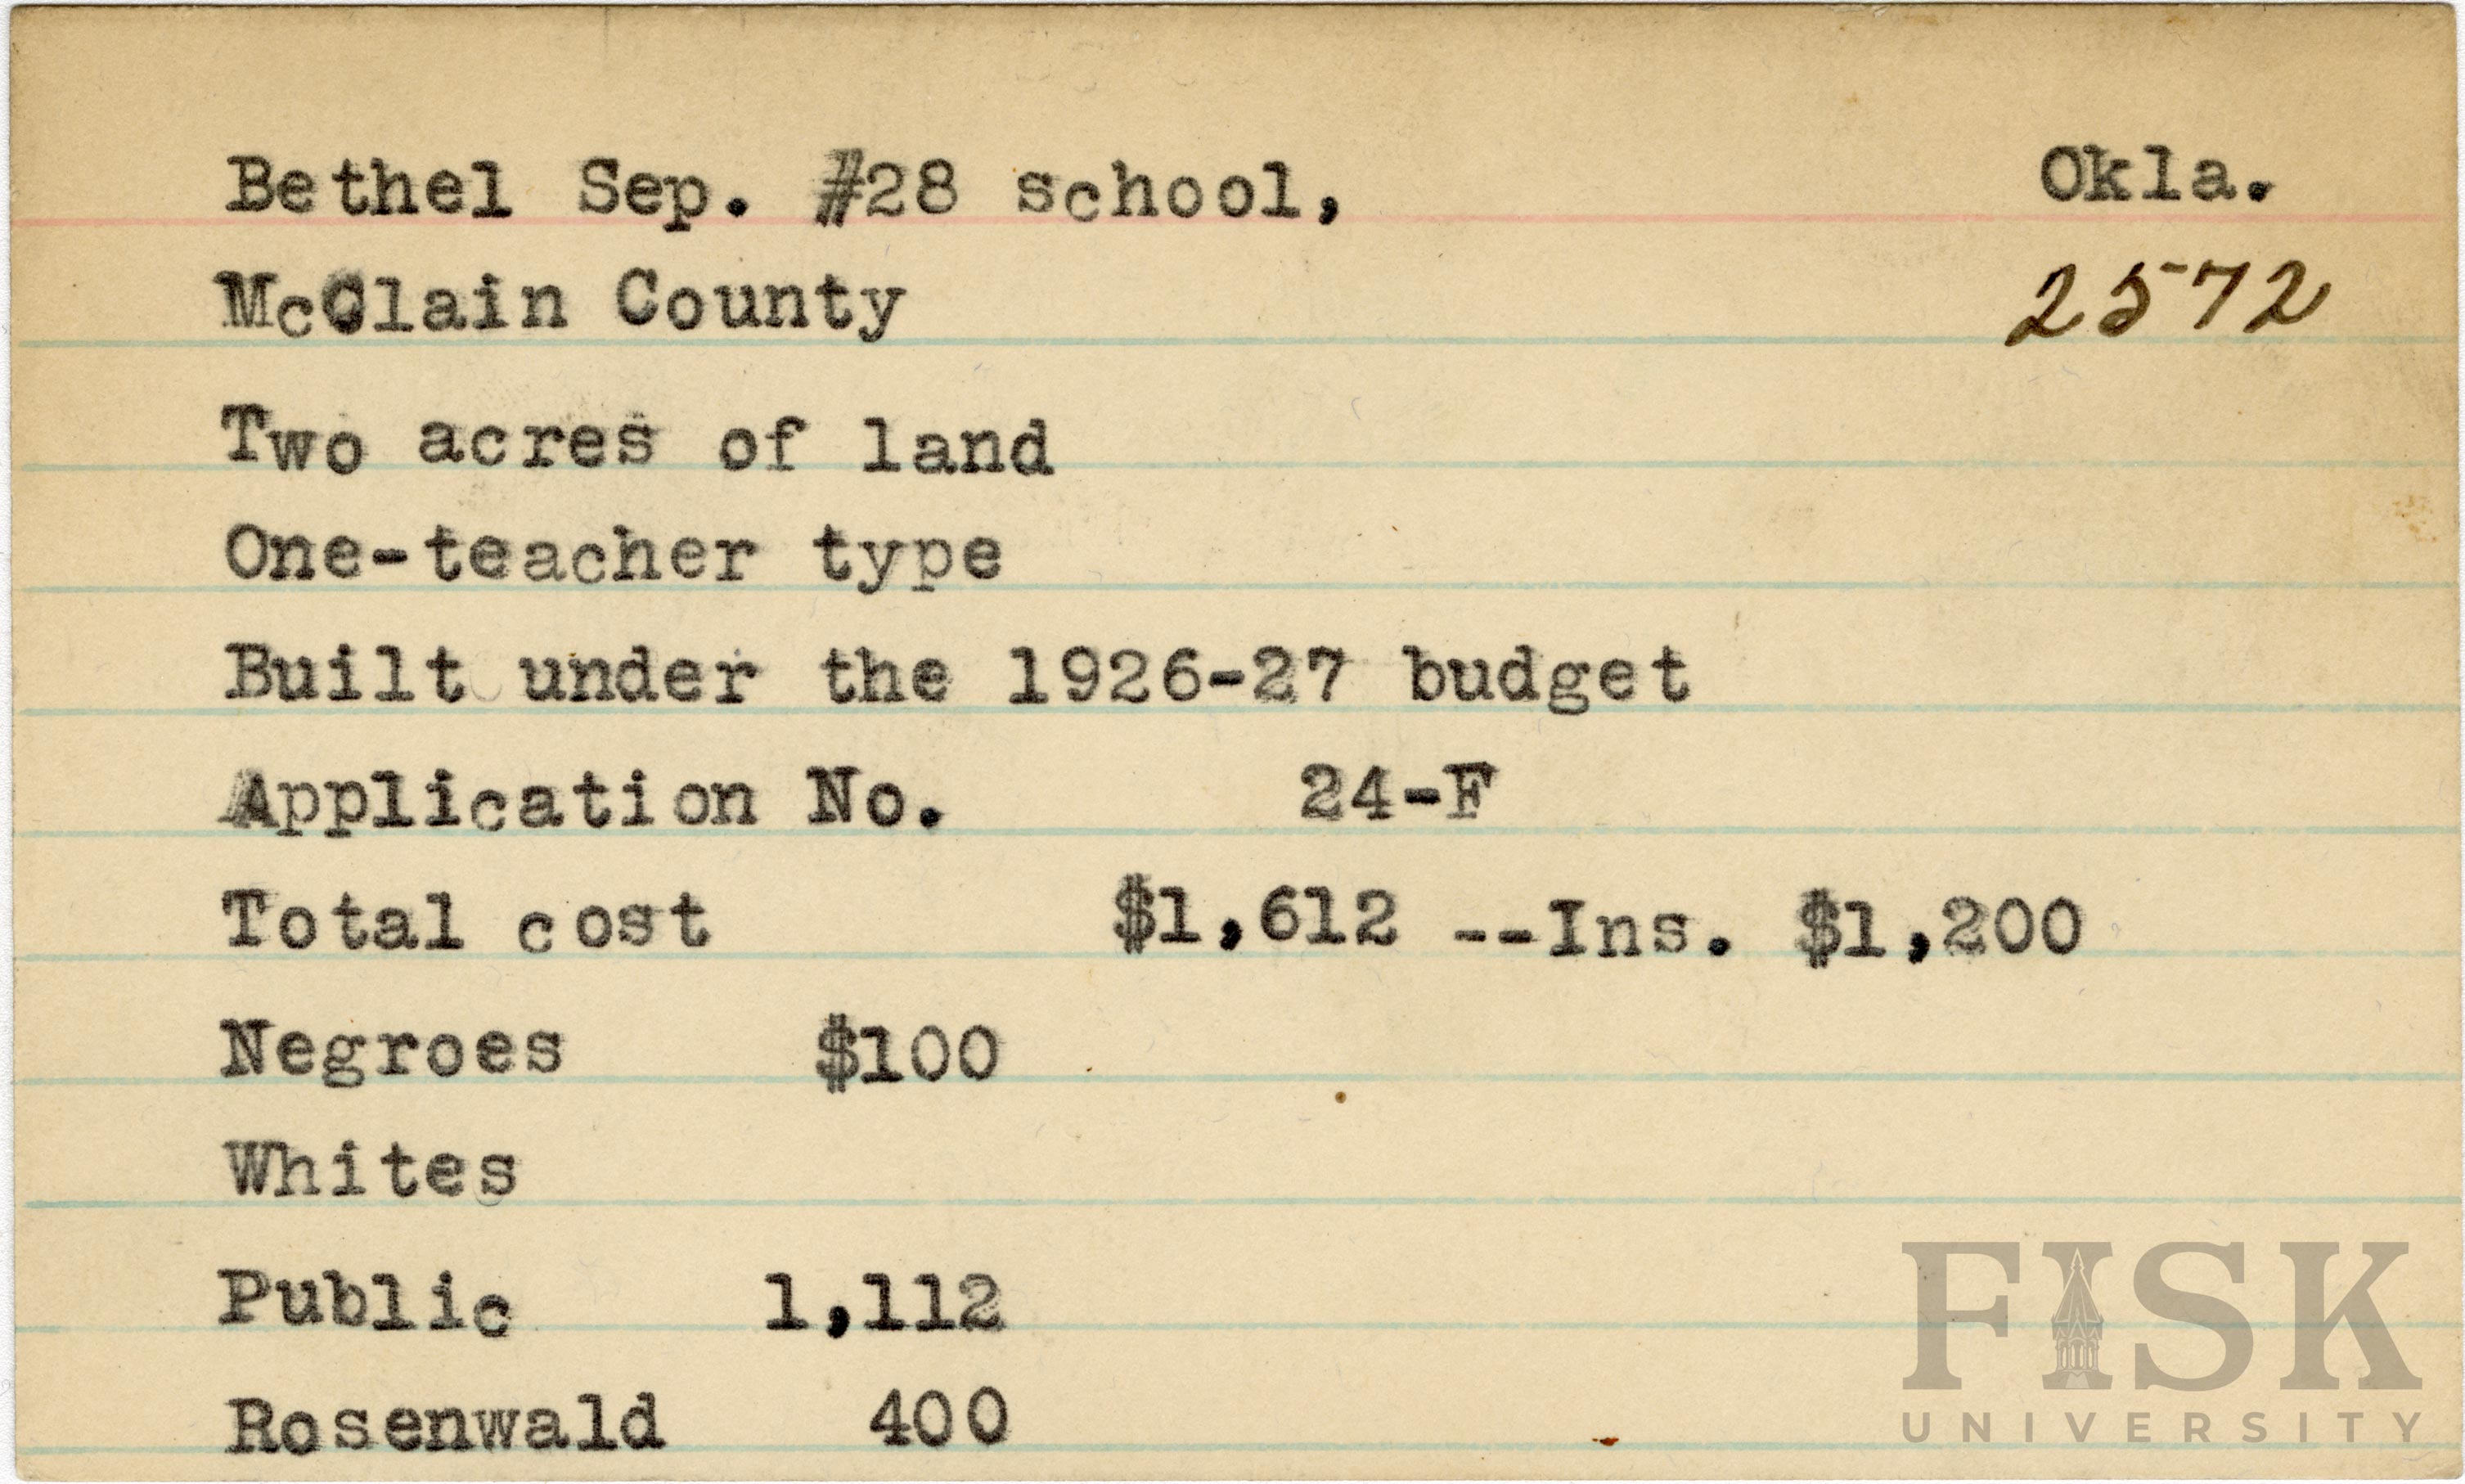 Bethel Sep. #28 school, Okla.
McClain County 2572
Two acres of land
One-teacher type
Built under the 1926-27 budget
Application No. 24-F
Total cost $1,612 --Ins. $1,200
Negroes $100
Whites
Public 1,112
Rosenwald 400
FISK
UNIVERSITY